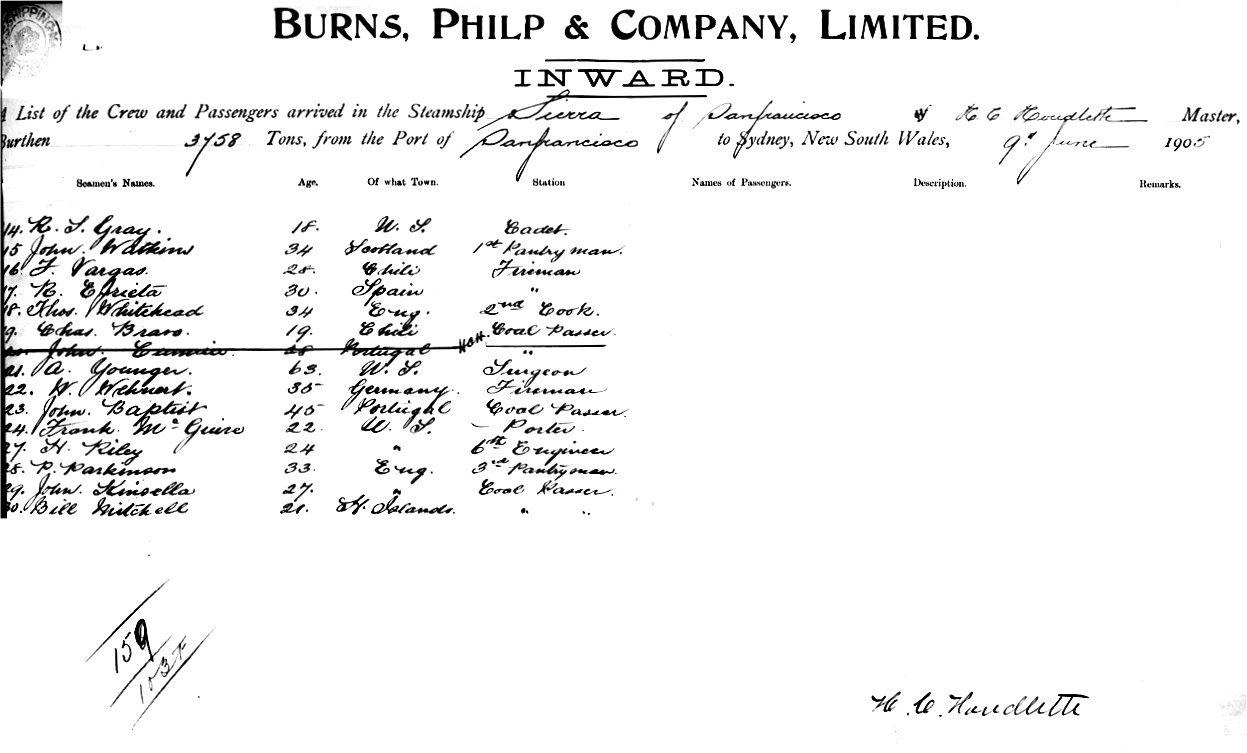 SHIPPING
BURNS, PHILP & COMPANY, LIMITED.
INWARD.
A List of the Crew and Passengers arrived in the Steamship Sierra of Sanfrancisco H C Houdlette Master,
Burthen 3758 Tons, from the Port of Sanfrancisco to Sydney, New South Wales, 9th June 1905
Seamen's Names. Age. Of what Town. Station Names of Passengers. Description. Remarks.
14. R. S. Gray. 18. U. S. Cadet.
15 John Watkins 34 Scotland 1st Pantryman.
16. F. Vargas. 28. Chili Fireman
17. R. 30. Spain "
18. Thos. Whitehead 34 Eng. 2nd Cook.
19. Chas. Bravo. 19. Chili Coal Passer.
20. John. 28 Portugal HCH. "
21. A. Younger. 63. U. S. Surgeon
22. W. Wehnert. 35 Germany. Fireman
23. John. Baptist 45 Portugal Coal Passer.
24. Frank Mc Guire 22. U. S. Porter.
27. H. Riley 24 " 6th Engineer
28. P. Parkinson 33. Eng. 3rd Pantryman.
29. John. Kinsella 27. " Coal Passer.
30. Bill Mitchell 21. H. Islands. " "
159
103
H. C. Houdlette